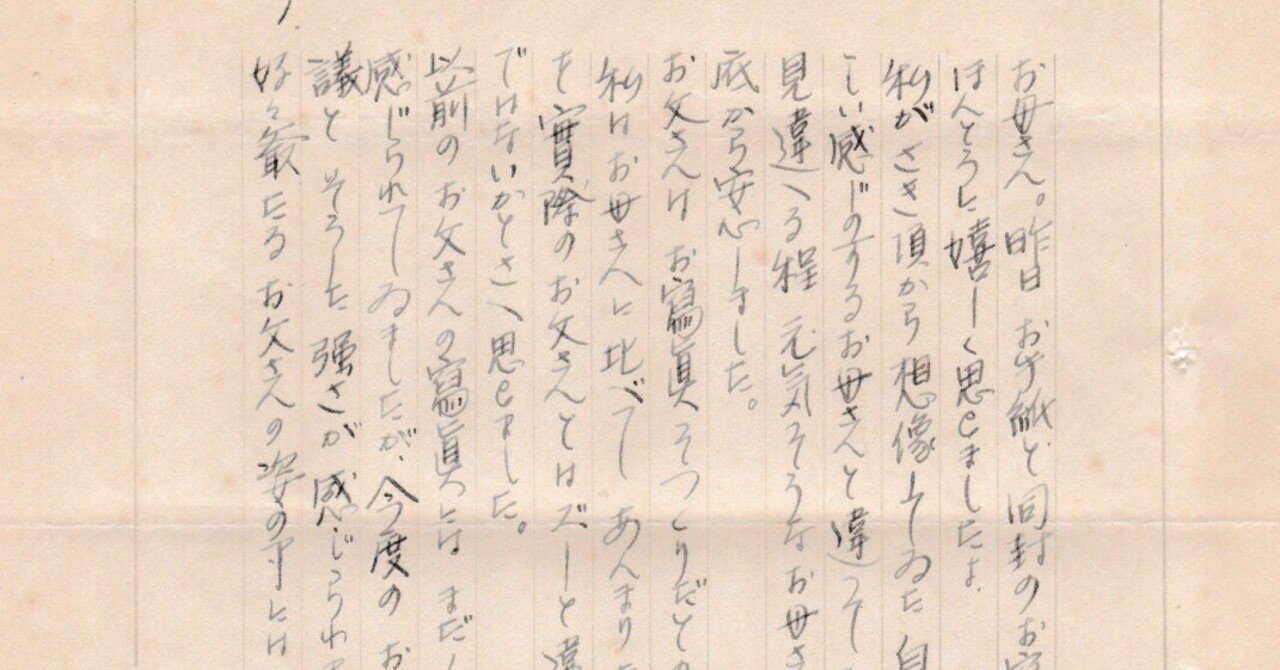 お母さん。昨日 お手紙と同封のお寫
ほんとうに嬉しく思ひましたよ
私がさき頃から想像してゐた
しい感じのするお母さんと違つて
見違へる程 元気そうなお母さ
底から安心しました。
お父さんは お寫眞そつくりだとの
私はお母さんに比べて あんまり
を實際のお父さんとはズーと違
ではないかとさへ思ひました。
以前のお父さんの寫眞には まだ
感じられてゐましたが、今度の お
議と そうした 強さが 感じられ
好々爺たる お父さんの姿の中には